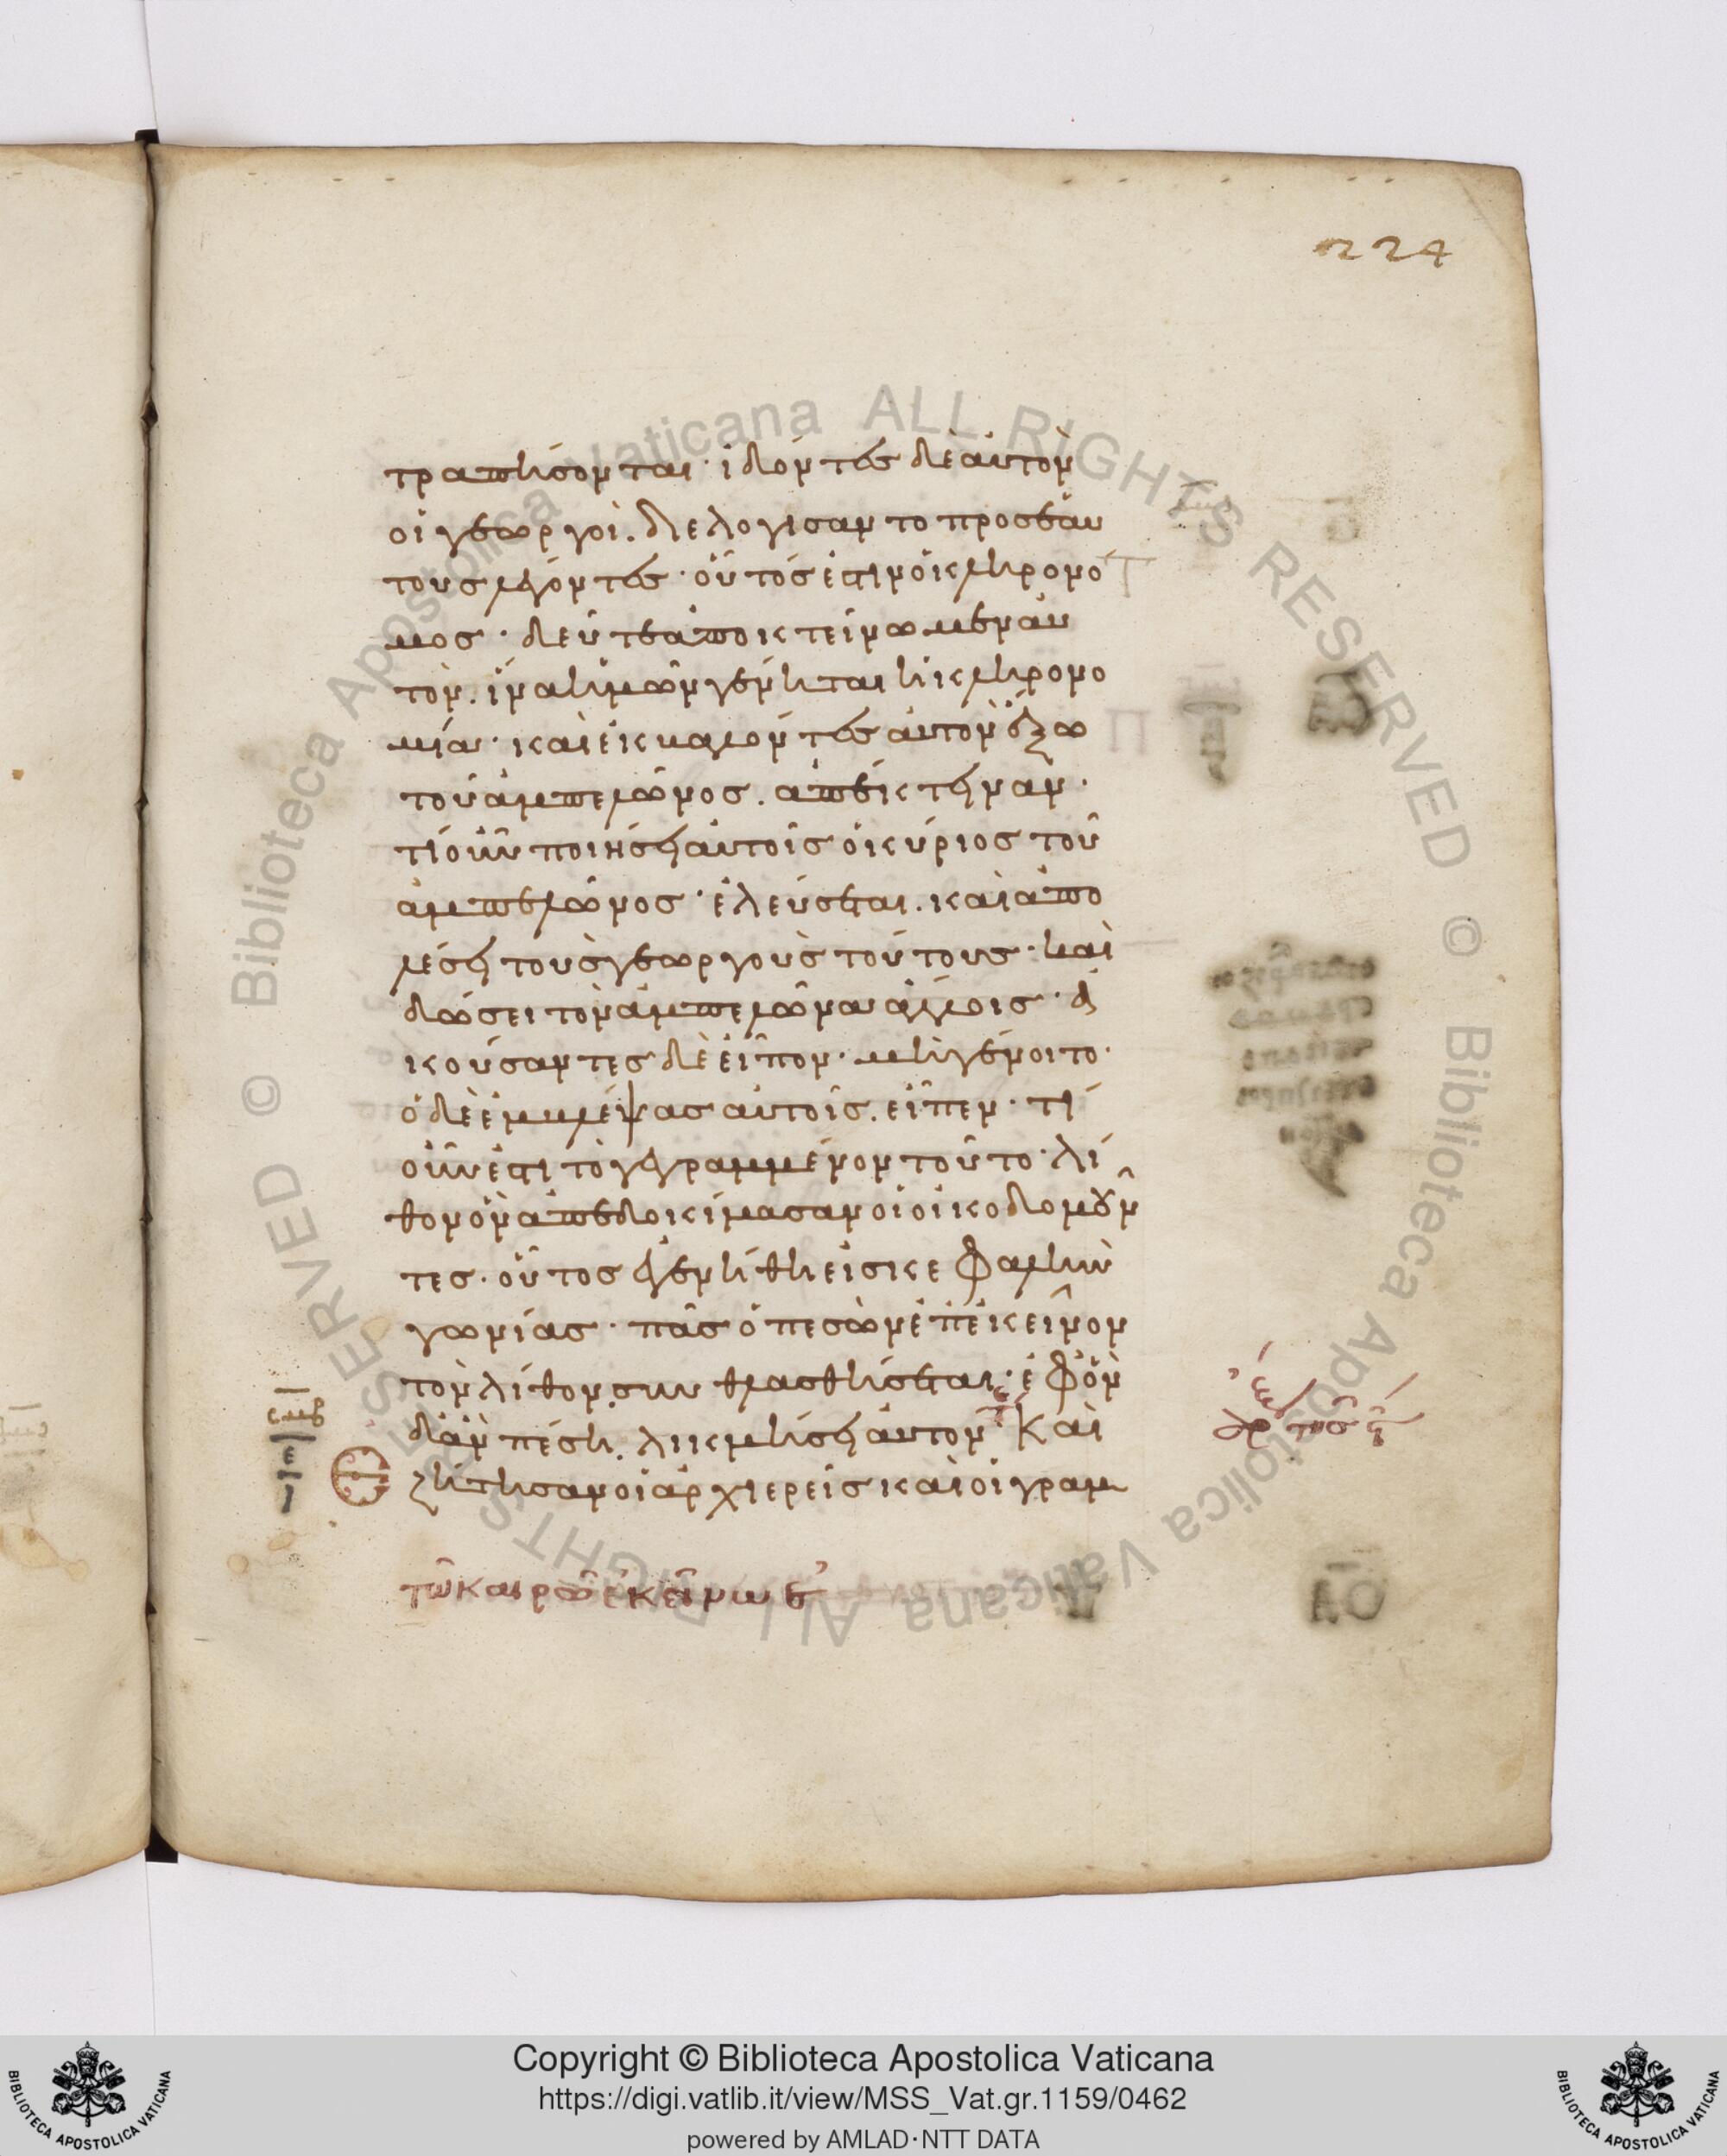 224
τραπήσονται· ἰδόντες δὲ αὐτὸν
οἱ γεωργοὶ. διελογίσαντο πρὸς ἑαυ
τοὺς λέγοντες· οὗτός ἐστιν ὁ κληρονό
μος· δεῦτε ἀποκτείνωμεν αὐ
τὸν. ἵνα ἡμῶν γένηται ἡ κληρονο
μία· καὶ ἐκβαλόντες αὐτὸν ἔξω
τοῦ ἀμπελῶνος. ἀπέκτειναν·
τί οὖν ποιήσει αὐτοῖς ὁ κύριος τοῦ
ἀμπελῶνος· ἐλεύσεται. καὶ ἀπο
λέσει τοὺς γεωργοὺς τούτους· καὶ
δώσει τὸν ἀμπελῶνα ἄλλοις· ἀ
κούσαντες δὲ εἶπον· μὴ γένοιτο·
ὁ δὲ ἐμβλέψας αὐτοῖς. εἶπεν· τί
οὖν ἐστι τὸ γεγραμμένον τοῦτο· λί
θον ὃν ἀπεδοκίμασαν οἱ οἰκοδομοῦν
τες· οὗτος ἐγενήθη εἰς κεφαλὴν
γωνίας· πᾶς ὁ πεσὼν ἐπ' ἐκεῖνον
τὸν λίθον. συνθλασθήσεται· ἐφ' ὃν
δ' ἂν πέσῃ. λικμήσει αὐτὸν Καὶ
ἐζήτησαν οἱ ἀρχιερεῖς καὶ οἱ γραμ
τῶ καιρῶ ἐκείνω
Copyright © Biblioteca Apostolica Vaticana
https://digi.vatlib.it/view/MSS_Vat.gr.1159/0462
powered by AMLAD·NTT DATA
BIBLIOTECA APOSTOLICA VATICANA
BIBLIOTECA APOSTOLICA VATICANA
© Biblioteca Apostolica Vaticana ALL RIGHTS RESERVED © Biblioteca Apostolica Vaticana ALL RIGHTS RESERVED